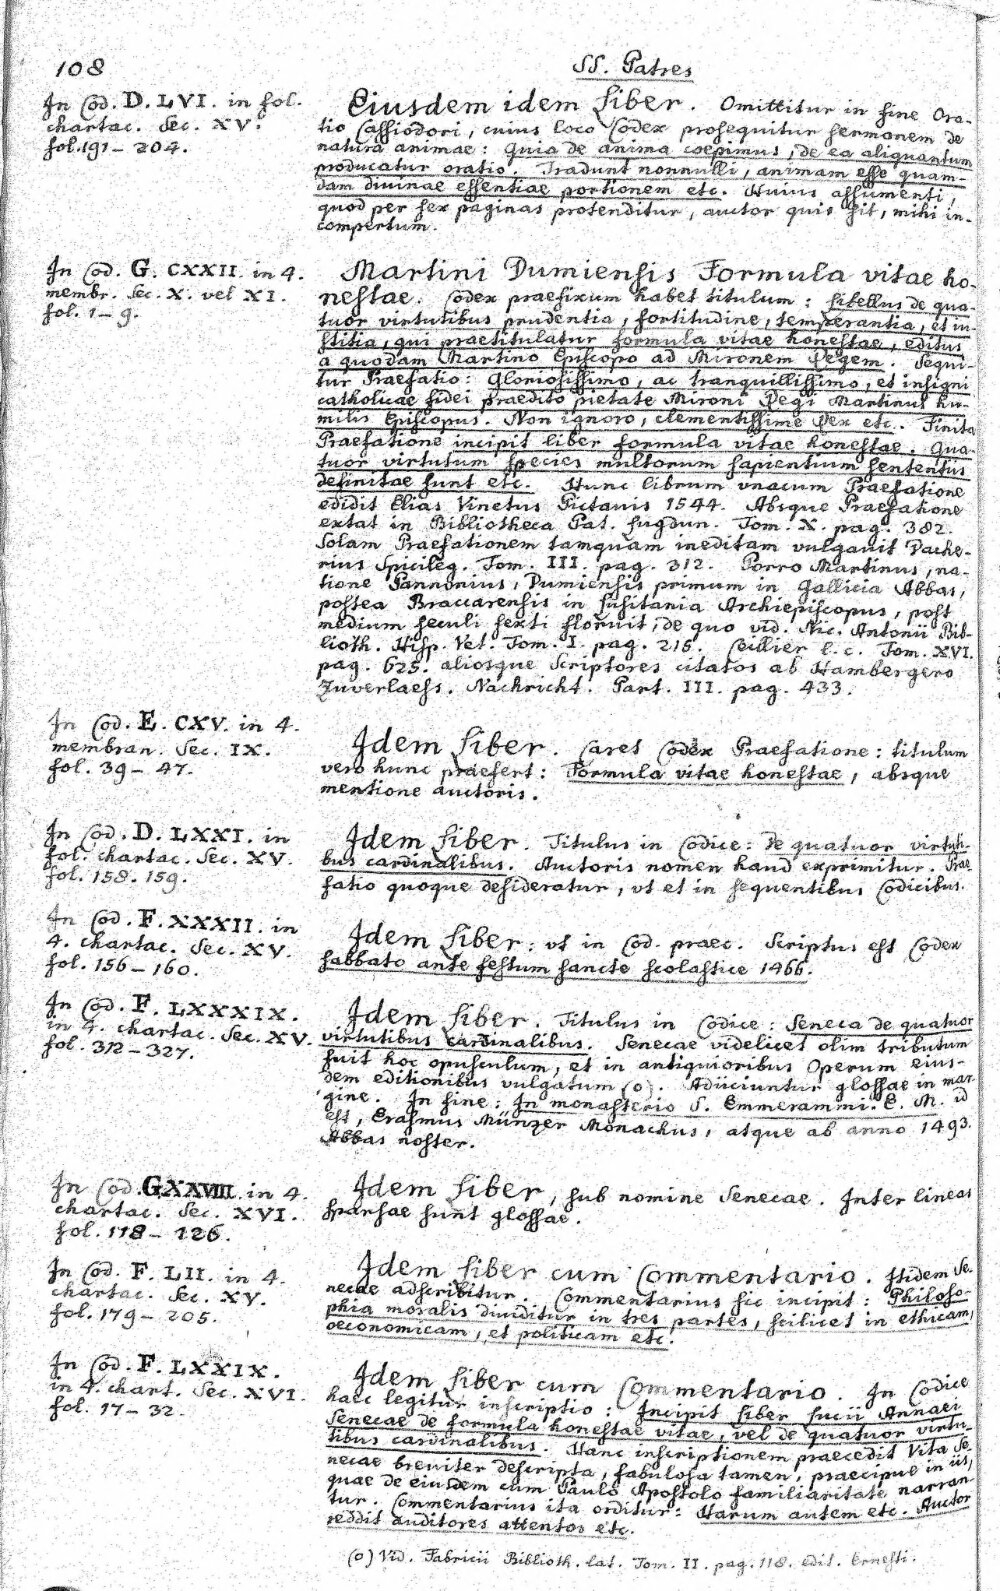 108
SS. Patres
In Cod. D. LVI. in fol.
chartac. Sec. XV.
fol. 191 - 204.
Eiusdem idem Liber. Omittitur in fine Ora-
tio Cassiodori, cuius loco Codex prosequitur sermonem de
natura animae: Quia de anima coepimus, de ea aliquantum
producatur oratio. Tradunt nonnulli, animam esse quam-
dam divinae essentiae portionem etc. Huius assumenti,
quod per sex paginas protenditur, auctor quis sit, mihi in-
compertum.
In Cod. G. CXXII. in 4.
membr. Sec. X. vel XI.
fol. 1 - 9.
Martini Dumiensis Formula vitae ho-
nestae. Codex praefixum habet titulum: Libellus de qua-
tuor virtutibus prudentia, fortitudine, temperantia, et iu-
stitia, qui praetitulatur formula vitae honestae, editus
a quodam Martino Episcopo ad Mironem Regem. Sequi-
tur Praefatio: Gloriosissimo, ac tranquillissimo, et insigni
catholicae fidei praedito pietate Mironi Regi Martinus hu-
milis Episcopus. Non ignoro, clementissime Rex etc. Finita
Praefatione incipit liber formula vitae honestae. Qua-
tuor virtutum species multorum sapientium sententiis
definitae sunt etc. Hunc librum vnacum Praefatione
edidit Elias Vinetus Pictavis 1544. Absque Praefatione
extat in Bibliotheca Pat. Lugdun. Tom. X. pag. 382.
Solam Praefationem tamquam ineditam vulgavit Dache-
rius Spicileg. Tom. III. pag. 312. Porro Martinus, na-
tione Pannonius, Dumiensis primum in Gallicia Abbas,
postea Braccarensis in Lusitania Archiepiscopus, post
medium seculi sexti floruit, de quo vid. Nic. Antonii Bib-
lioth. Hisp. Vet. Tom. I. pag. 215. Ceillier l. c. Tom. XVI.
pag. 625. aliosque Scriptores citatos ab Hambergero
Zuverlaess. Nachricht. Part. III. pag. 433.
In Cod. E. CXV. in 4.
membran. Sec. IX.
fol. 39 - 47.
Idem Liber. Caret Codex Praefatione: titulum
vero hunc praefert: Formula vitae honestae, absque
mentione auctoris.
In Cod. D. LXXI. in
fol. chartac. Sec. XV.
fol. 158. 159.
Idem Liber. Titulus in Codice: de quatuor virtuti-
bus cardinalibus. Auctoris nomen haud exprimitur. Prae-
fatio quoque desideratur, vt et in sequentibus Codicibus.
In Cod. F. XXXII. in
4. chartac. Sec. XV.
fol. 156 - 160.
Idem Liber: vt in Cod. praec. Scriptus est Codex
sabbato ante festum sancte scolastice 1466.
In Cod. F. LXXXIX.
in 4. chartac. Sec. XV.
fol. 312 - 327.
Idem Liber. Titulus in Codice: Seneca de quatuor
virtutibus cardinalibus. Senecae videlicet olim tributum
fuit hoc opusculum, et in antiquioribus Operum eius-
dem editionibus vulgatum (o). Adiiciuntur glossae in mar-
gine. In fine: In monasterio S. Emmerammi. E. M. id
est, Erasmus Münzer Monachus, atque ab anno 1493.
Abbas noster.
In Cod. G XXVIII. in 4.
chartac. Sec. XVI.
fol. 118 - 126.
Idem Liber, sub nomine Senecae. Inter lineas
sparsae sunt glossae.
In Cod. F. LII. in 4.
chartac. Sec. XV.
fol. 179 - 205.
Idem Liber cum Commentario. Itidem Se-
necae adscribitur. Commentarius sic incipit: Philoso-
phia moralis dividitur in tres partes, scilicet in ethicam,
oeconomicam, et politicam etc.
In Cod. F. LXXIX.
in 4. chart. Sec. XVI.
fol. 17 - 32.
Idem Liber cum Commentario. In Codice
haec legitur inscriptio: Incipit Liber Lucii Annaei
Senecae de formula honestae vitae, vel de quatuor virtu-
tibus cardinalibus. Hanc inscriptionem praecedit Vita Se-
necae breviter descripta, fabulosa tamen, praecipue in iis,
quae de eiusdem cum Paulo Apostolo familiaritate narran-
tur. Commentarius ita orditur: Harum autem etc. Auctor
reddit auditores attentos etc.
(o) Vid. Fabricii Biblioth. lat. Tom. II. pag. 118. edit. Ernesti.